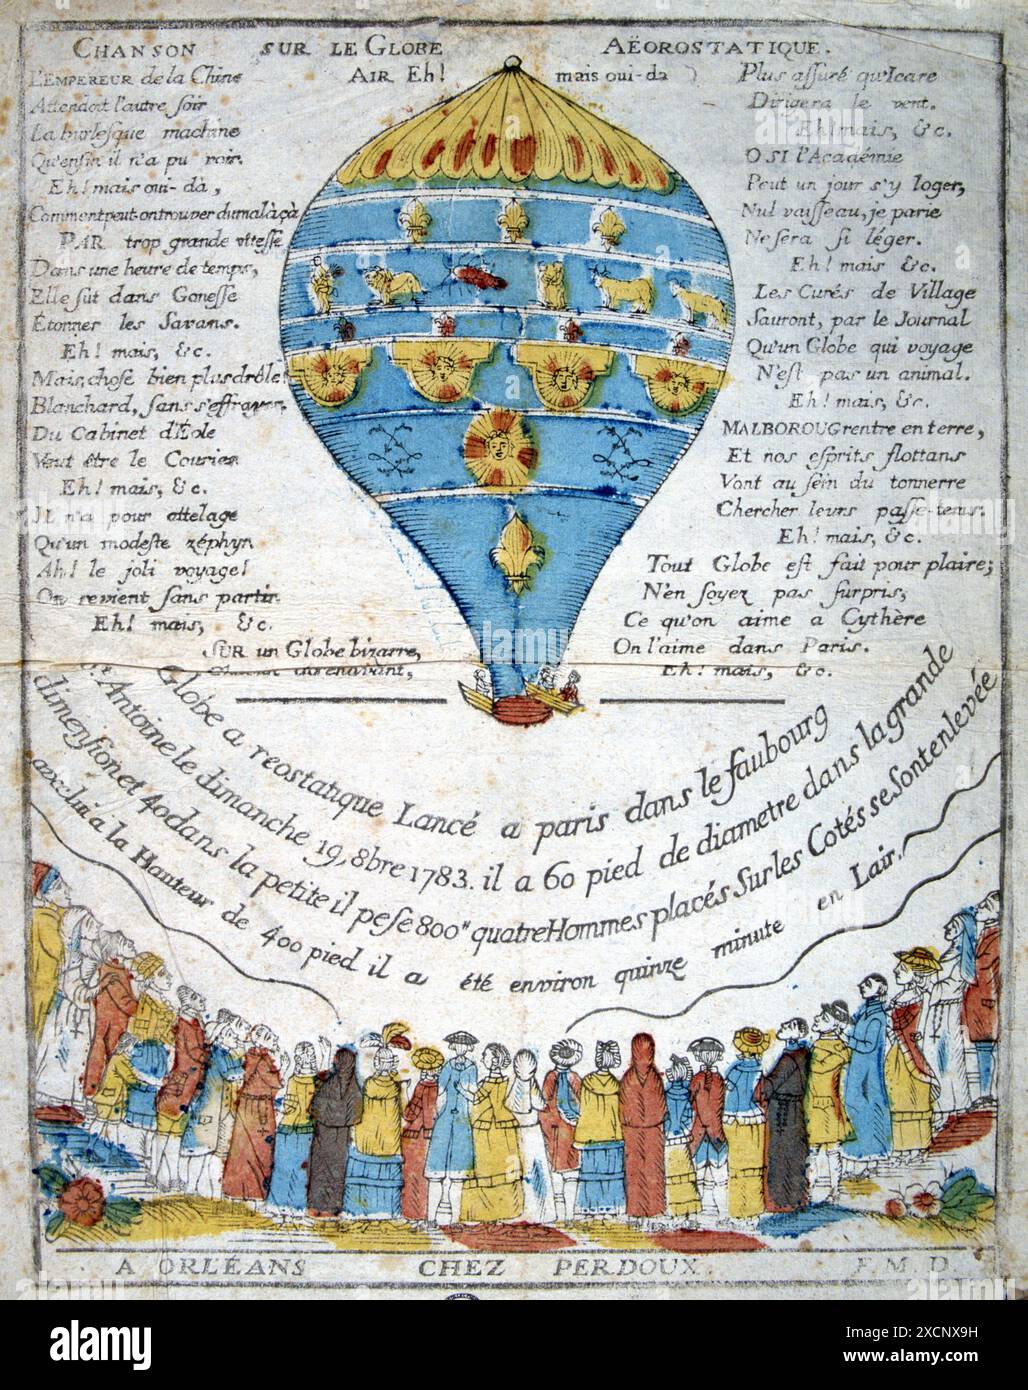 CHANSON SUR LE GLOBE AËOROSTATIQUE.
AIR Eh! mais oui-da
L'EMPEREUR de la Chine
Attendoit l'autre soir
La burlesque machine
Qu'enfin il n'a pu voir.
Eh! mais oui-dà,
Comment peut-on trouver du mal à çà
PAR trop grande vîtesse
Dans une heure de temps,
Elle fut dans Gonesse
Étonner les Savans.
Eh! mais, &c.
Mais, chose bien plus drôle!
Blanchard, sans s'effrayer,
Du Cabinet d'Éole
Veut être le Courier
Eh! mais, &c.
Il n'a pour attelage
Qu'un modeste zéphyr.
Ah! le joli voyage!
On revient sans partir
Eh! mais, &c.
SUR un Globe bizarre,
Plus assuré qu'Icare
Dirigera le vent.
Eh! mais, &c.
O SI l'Académie
Peut un jour s'y loger,
Nul vaisseau, je parie
Ne sera si léger.
Eh! mais &c.
Les Curés de Village
Sauront, par le Journal
Qu'un Globe qui voyage
N'est pas un animal.
Eh! mais, &c.
MALBOROUG rentre en terre,
Et nos esprits flottans
Vont au sein du tonnerre
Chercher leurs passe-tems.
Eh! mais, &c.
Tout Globe est fait pour plaire;
N'en soyez pas surpris,
Ce qu'on aime a Cythère
On l'aime dans Paris.
Eh! mais, &c.
Globe a reostatique Lancé a paris dans le faubourg
St. Antoine le dimanche 19, 8bre 1783. il a 60 pied de diametre dans la grande
dimension et 40 dans la petite il pese 800" quatre Hommes placés Sur les Cotés se Sont enlevée
avec lui a la Hauteur de 400 pied il a été environ quinze minute en Lair.
A ORLÉANS CHEZ PERDOUX. F. M. D.
alamy
Image ID: 2XCNX9H
www.alamy.com